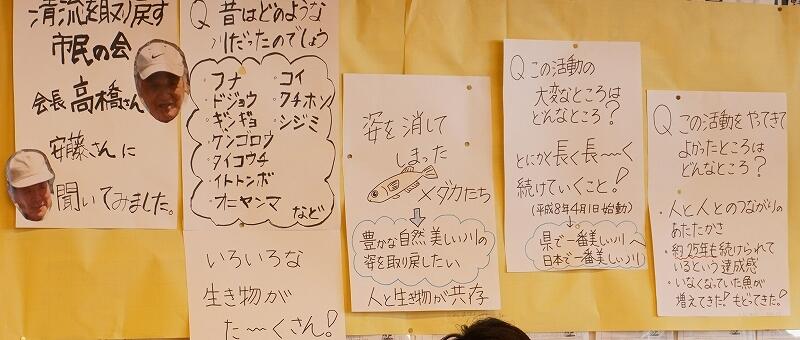 清流を取り戻す
市民の会
会長 高橋さん
安藤さんに
聞いてみました。
Q 昔はどのような
川だったのでしょう
・フナ ・コイ
・ドジョウ ・クチホソ
・ギンギョ ・シジミ
・ケンゴロウ
・タイコウチ
・イトトンボ
・オニヤンマ
など
いろいろな
生き物が
た〜くさん!
姿を消して
しまった
メダカたち
豊かな自然、美しい川の
姿を取り戻したい
人と生き物が共存
Q この活動の
大変なところは
どんなところ?
とにかく長く長〜く
続けていくこと!
(平成8年4月1日始動)
県で一番美しい川へ
日本で一番美しい川
Q この活動をやってきて
よかったところは
どんなところ?
・人と人とのつながりの
あたたかさ
・約25年も続けられて
いるという達成感
・いなくなっていた魚が
増えてきた!もどってきた!